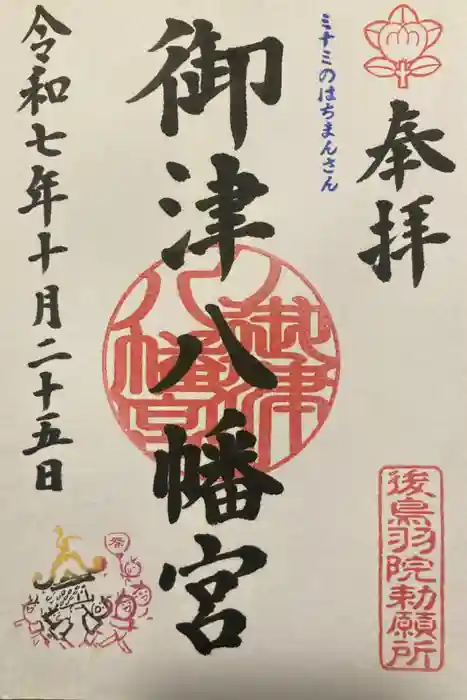 奉拝
後鳥羽院勅願所
ミナミのはちまんさん
御津八幡宮
御津八幡宮
令和七年十月二十五日
祭